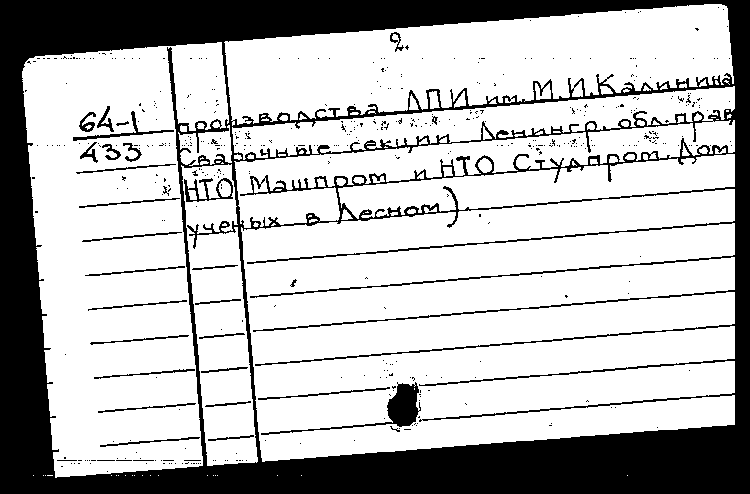 2.
64-1 производства ЛПИ им. М.И. Калинина
433 Сварочные секции Ленингр. обл. прав
НТО Машпром и НТО Студпром. Дом
ученых в Лесном).